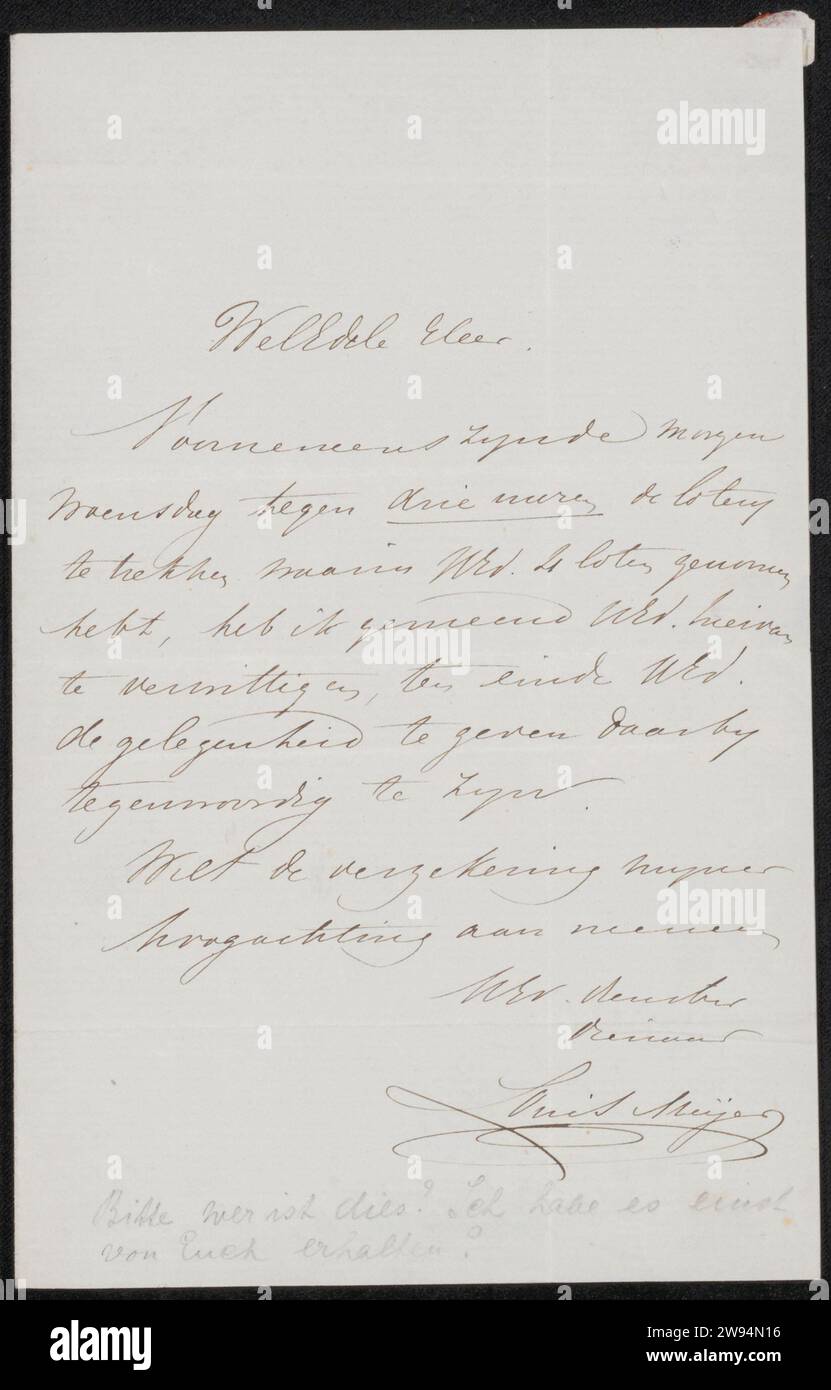 WelEdele Heer.
Voornemens zynde morgen
woensdag tegen drie uuren de lotery
te trekken waarin UEd. 4 loten genomen
hebt, heb ik gemeend UEd. hiervan
te verwittigen, ten einde UEd.
de gelegenheid te geven daarby
tegenwoordig te zyn.
Wilt de verzekering myner
hoogachting aannemen
UEd. dienstw
dienaar
Louis Meijer
Bitte wer ist dies? Ich habe es einst
von Euch erhalten?
alamy
Image ID: 2W94N16
www.alamy.com